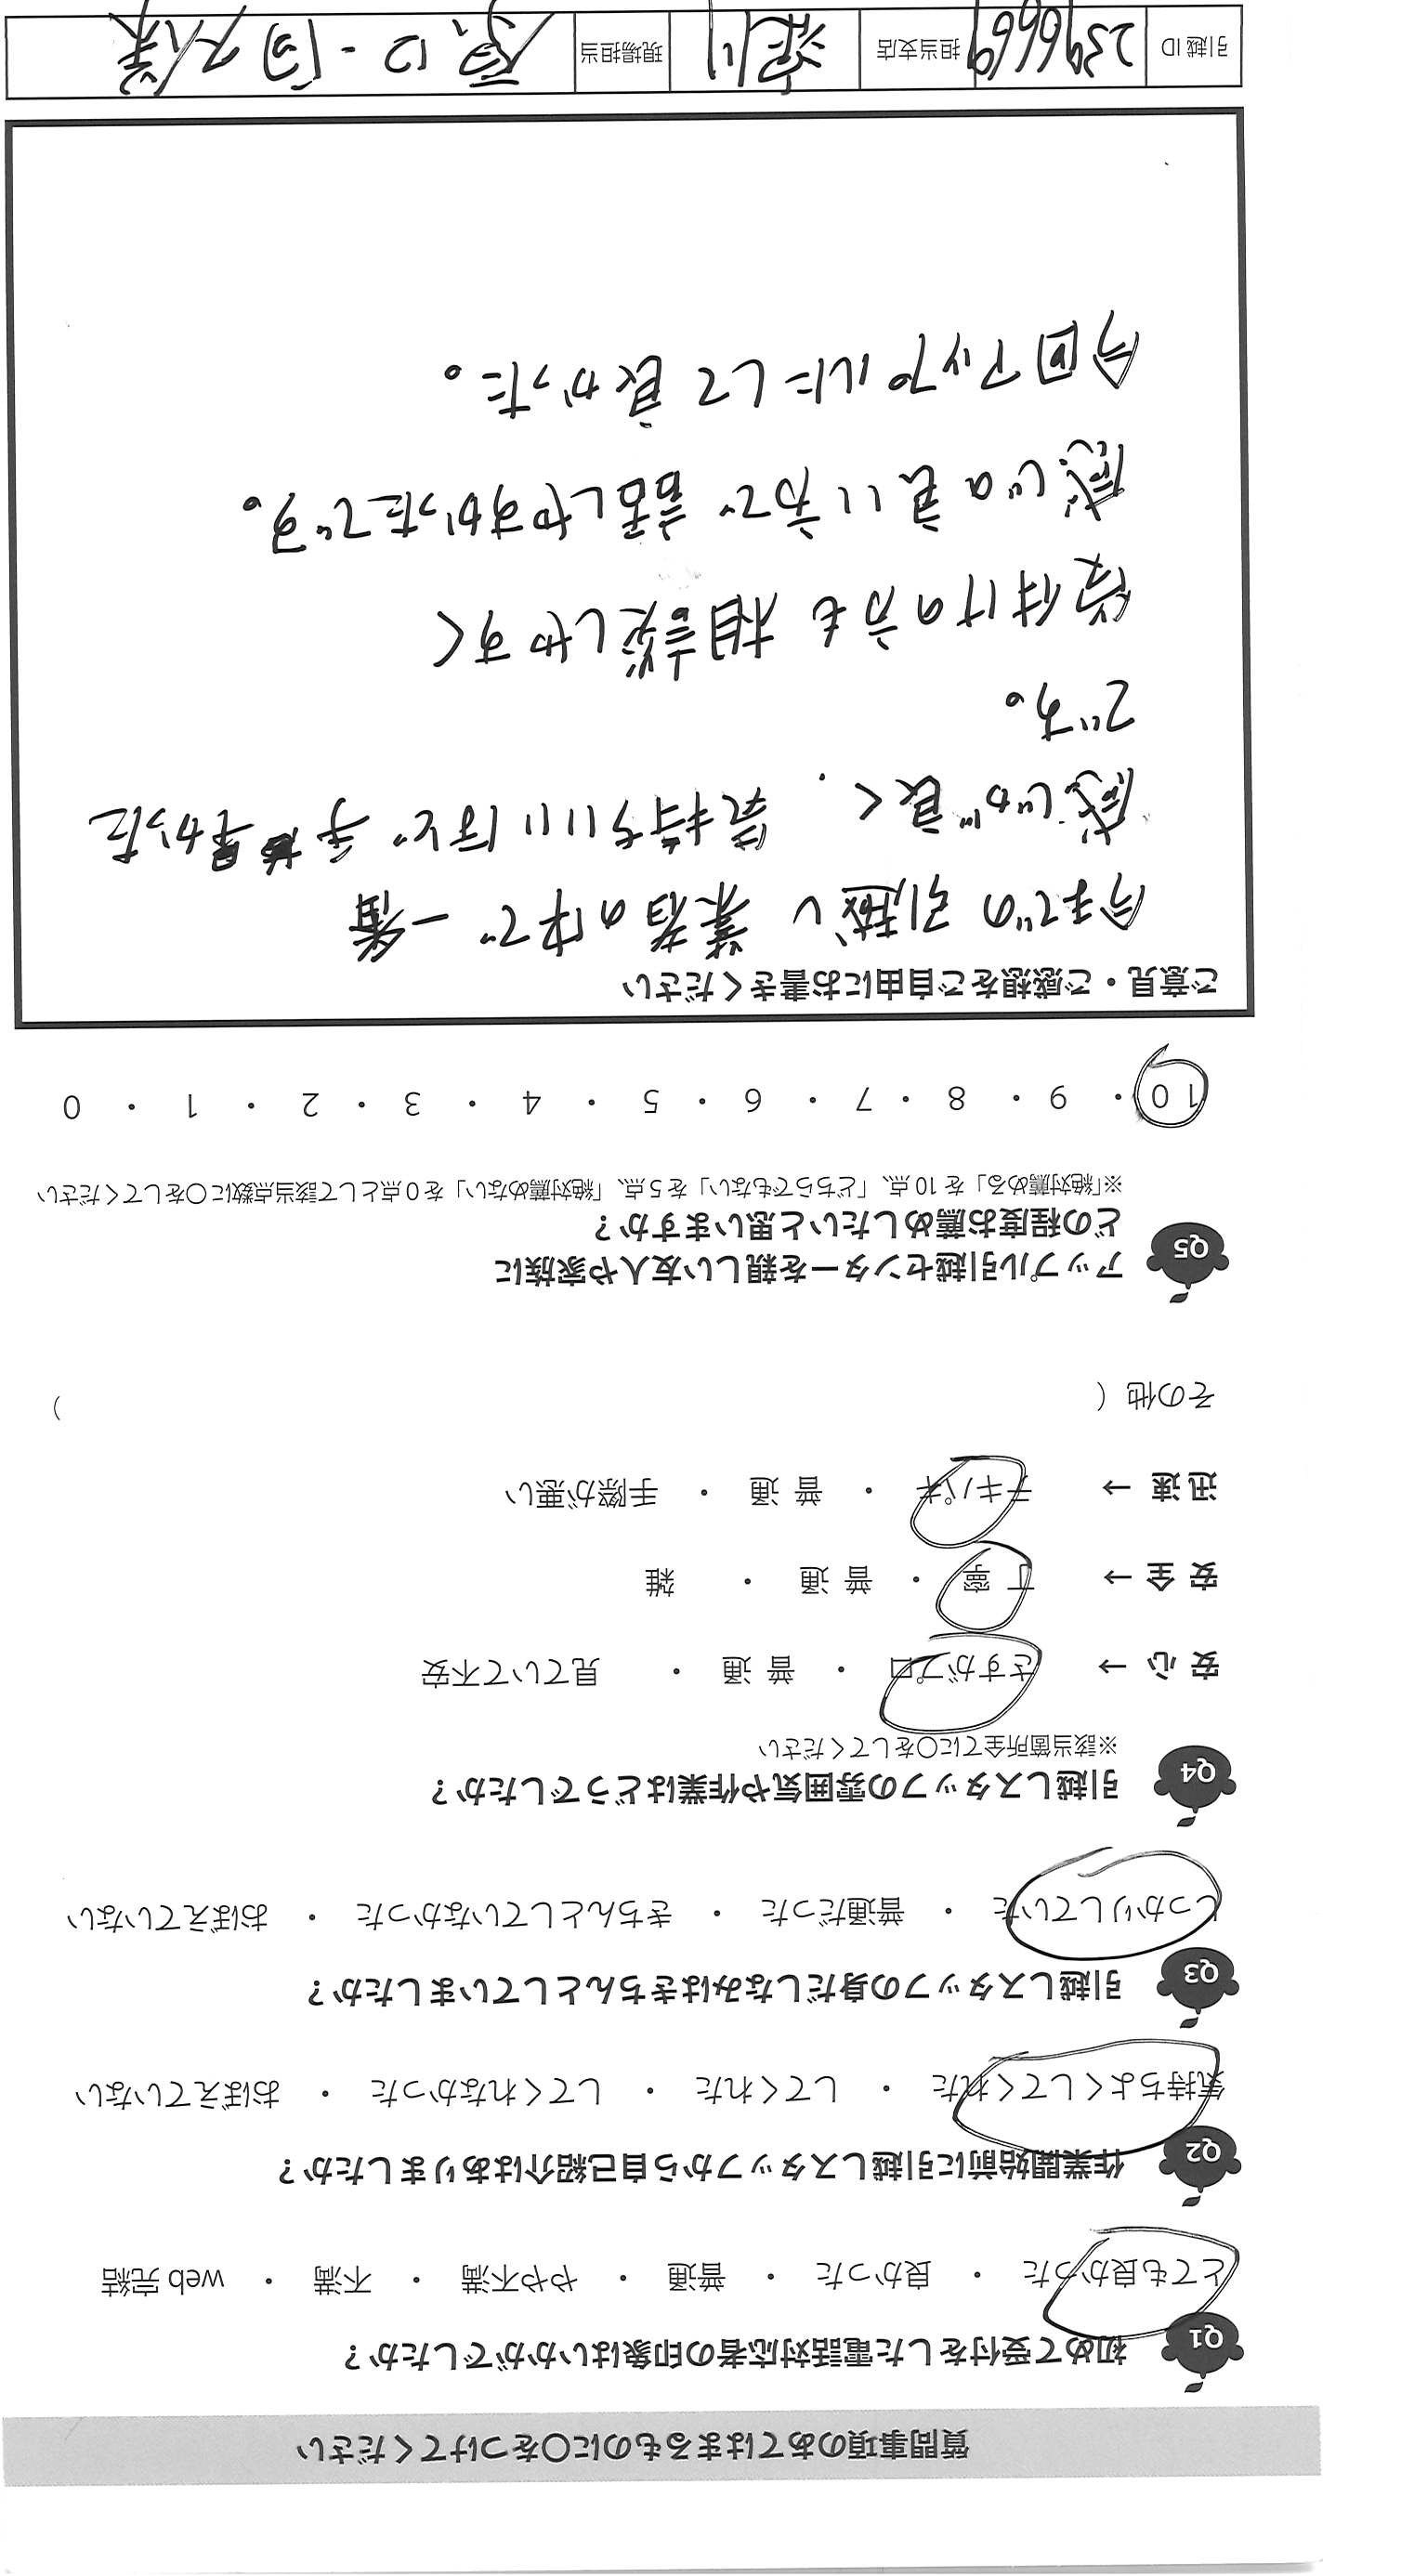 質問事項のあてはまるものに〇をつけてください
Q1 初めて受付をした電話対応者の印象はいかがでしたか？
とても良かった ・ 良かった ・ 普通 ・ やや不満 ・ 不満 ・ web 完結
Q2 作業開始前に引越しスタッフから自己紹介はありましたか？
気持ちよくしてくれた ・ してくれた ・ してくれなかった ・ おぼえていない
Q3 引越しスタッフの身だしなみはきちんとしていましたか？
しっかりしていた ・ 普通だった ・ きちんとしていなかった ・ おぼえていない
Q4 引越しスタッフの雰囲気や作業はどうでしたか？
※該当箇所全てに〇をしてください
安心 → さすがプロ ・ 普通 ・ 見ていて不安
安全 → 丁寧 ・ 普通 ・ 雑
迅速 → テキパキ ・ 普通 ・ 手際が悪い
その他（ ）
Q5 アップル引越センターを親しい友人や家族に
どの程度お薦めしたいと思いますか？
※「絶対薦める」を10点、「どちらでもない」を5点、「絶対薦めない」を0点として該当点数に〇をしてください
10 ・ 9 ・ 8 ・ 7 ・ 6 ・ 5 ・ 4 ・ 3 ・ 2 ・ 1 ・ 0
ご意見・ご感想をご自由にお書きください
今までの引越し業者の中で一番
感じが良く、気持ちいいほど手早かった
です。
受付けの方も相談しやすく
感じの良い方で話しやすかったです。
今回アップルにして良かった。
引越ID 2596669 担当支店 現場担当